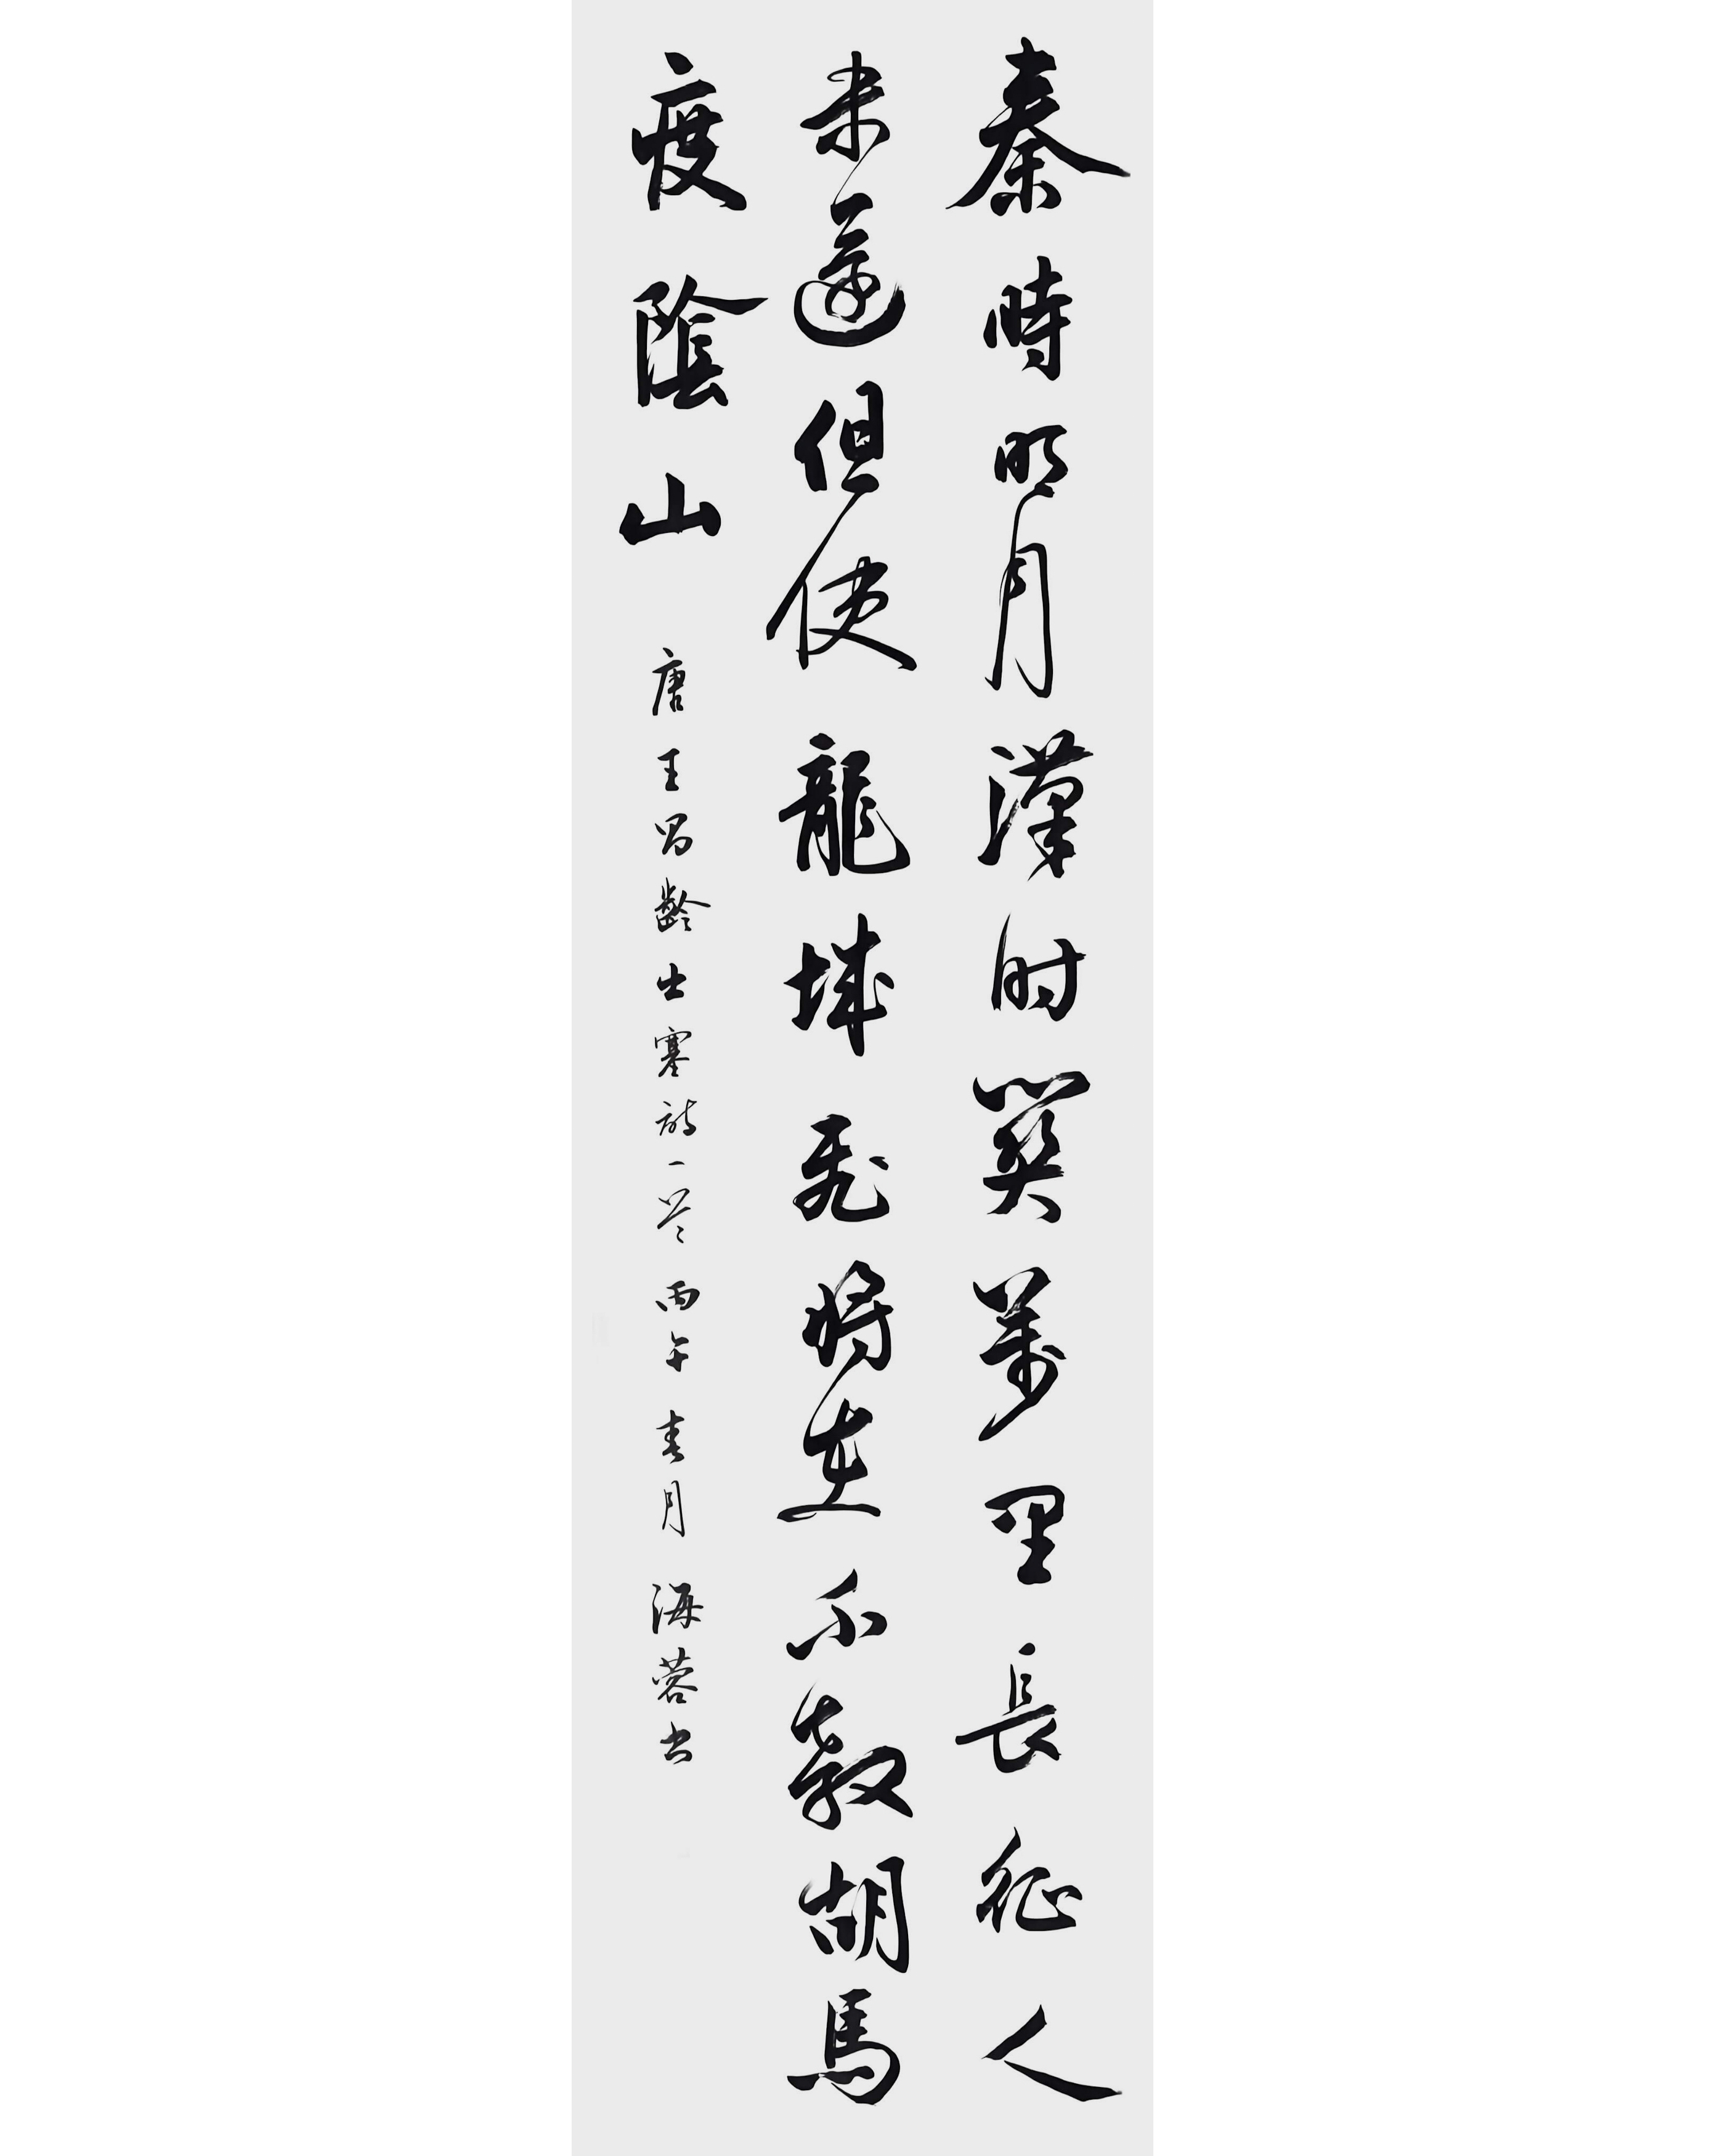 秦時明月漢时關萬里長征人
未還但使龍城飛將在不教胡馬
度陰山 唐王昌齡出塞詩一首 丙午春月 海蓉书